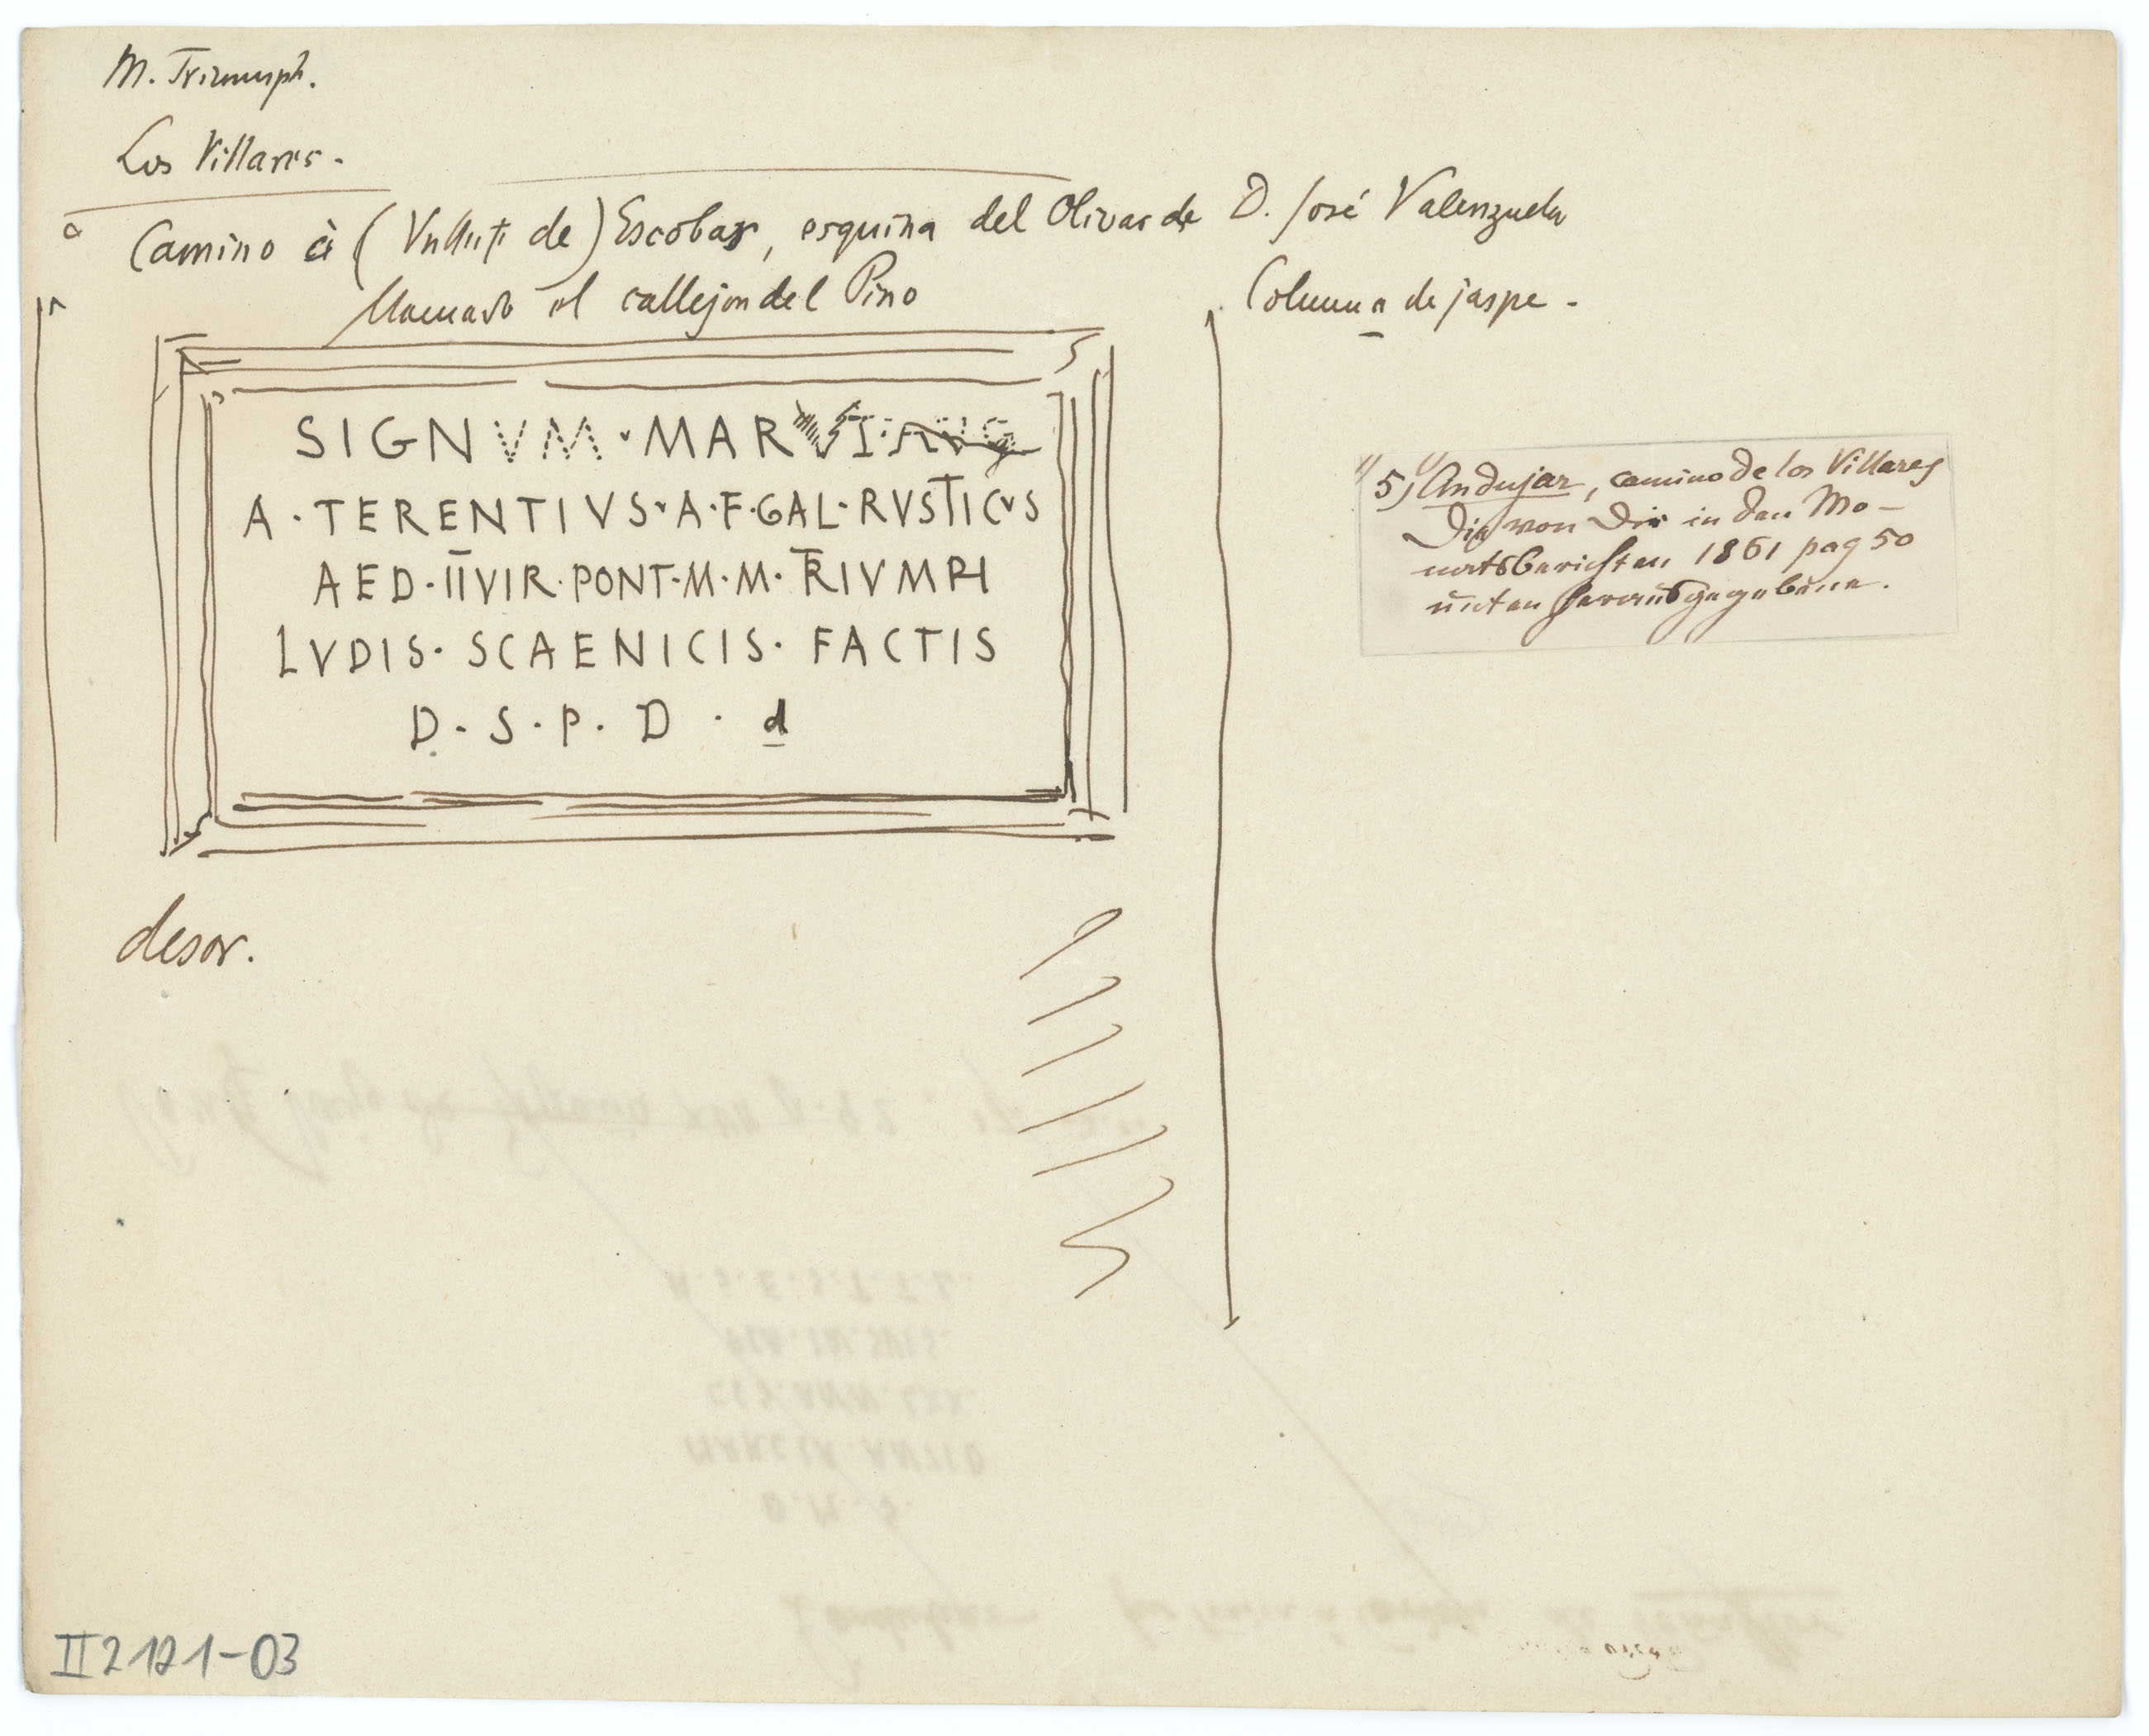 M. Triumph.
Los Villares.
a Camino à ( de) Escobar, esquina del Olivar de D. José Valenzuela
llamado el callejon del Pino
Columna de jaspe.
SIGNVM · MAR
A · TERENTIVS · A · F · GAL · RVSTICVS
AED · IIVIR · PONT · M · M · TRIVMPH
LVDIS · SCAENICIS · FACTIS
D · S · P · D · d
5) Andujar, camino de los Villares
Die von Dir in den Mo-
natsberichten 1861 pag 50
unten herausgegebene.
desor.
II 2121-03